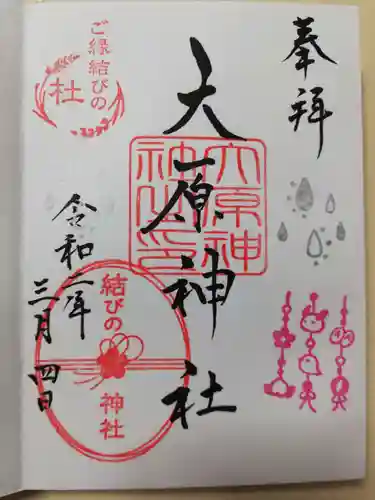 奉拝
大原神社
大原神社之印
ご縁結びの
社
令和二年
三月四日
結びの
神社